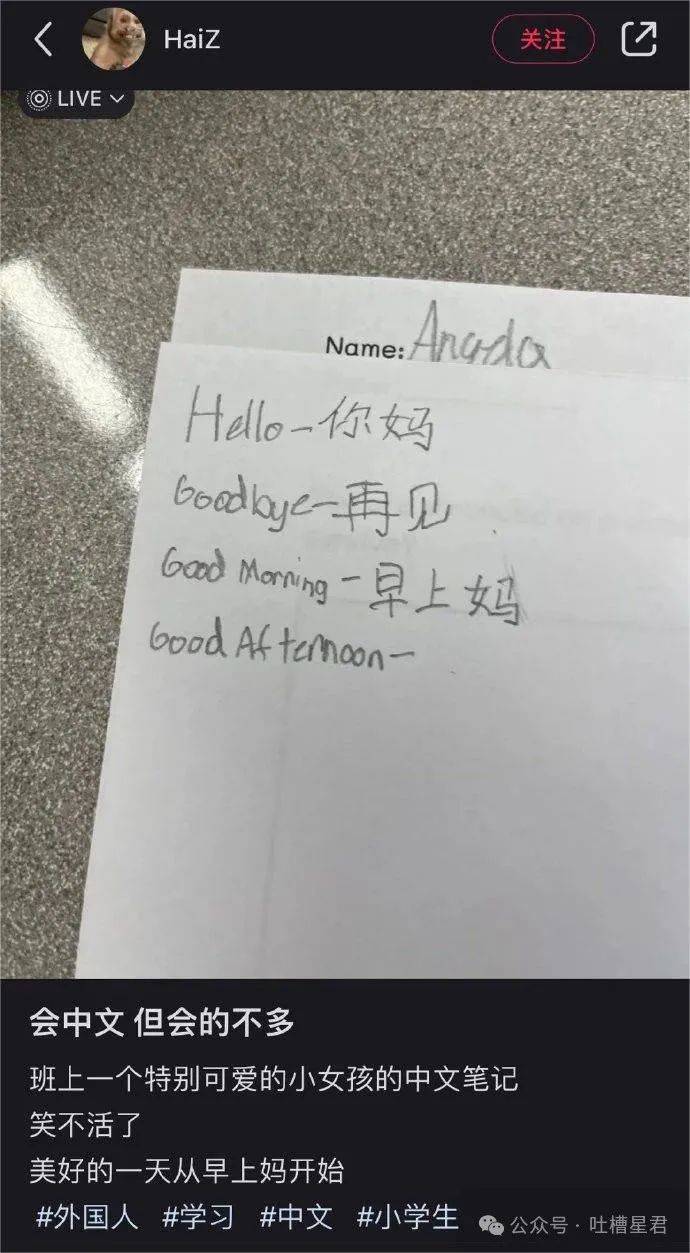 HaiZ
关注
LIVE
Name: Anada
Hello - 你妈
Goodbye - 再见
Good Morning - 早上妈
Good Afternoon -
会中文 但会的不多
班上一个特别可爱的小女孩的中文笔记
笑不活了
美好的一天从早上妈开始
#外国人 #学习 #中文 #小学生
公众号 · 吐槽星君